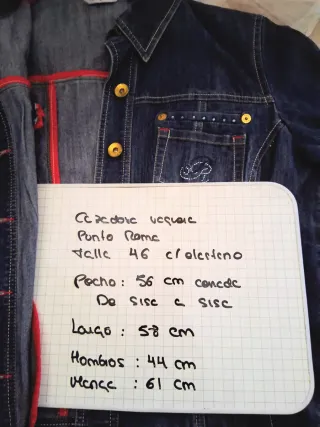 Cazadora vaquera
Punto Roma
Talla 46 c/elasteno
Pecho: 56 cm
De sisa a sisa
Largo: 58 cm
Hombros: 44 cm
Manga: 61 cm